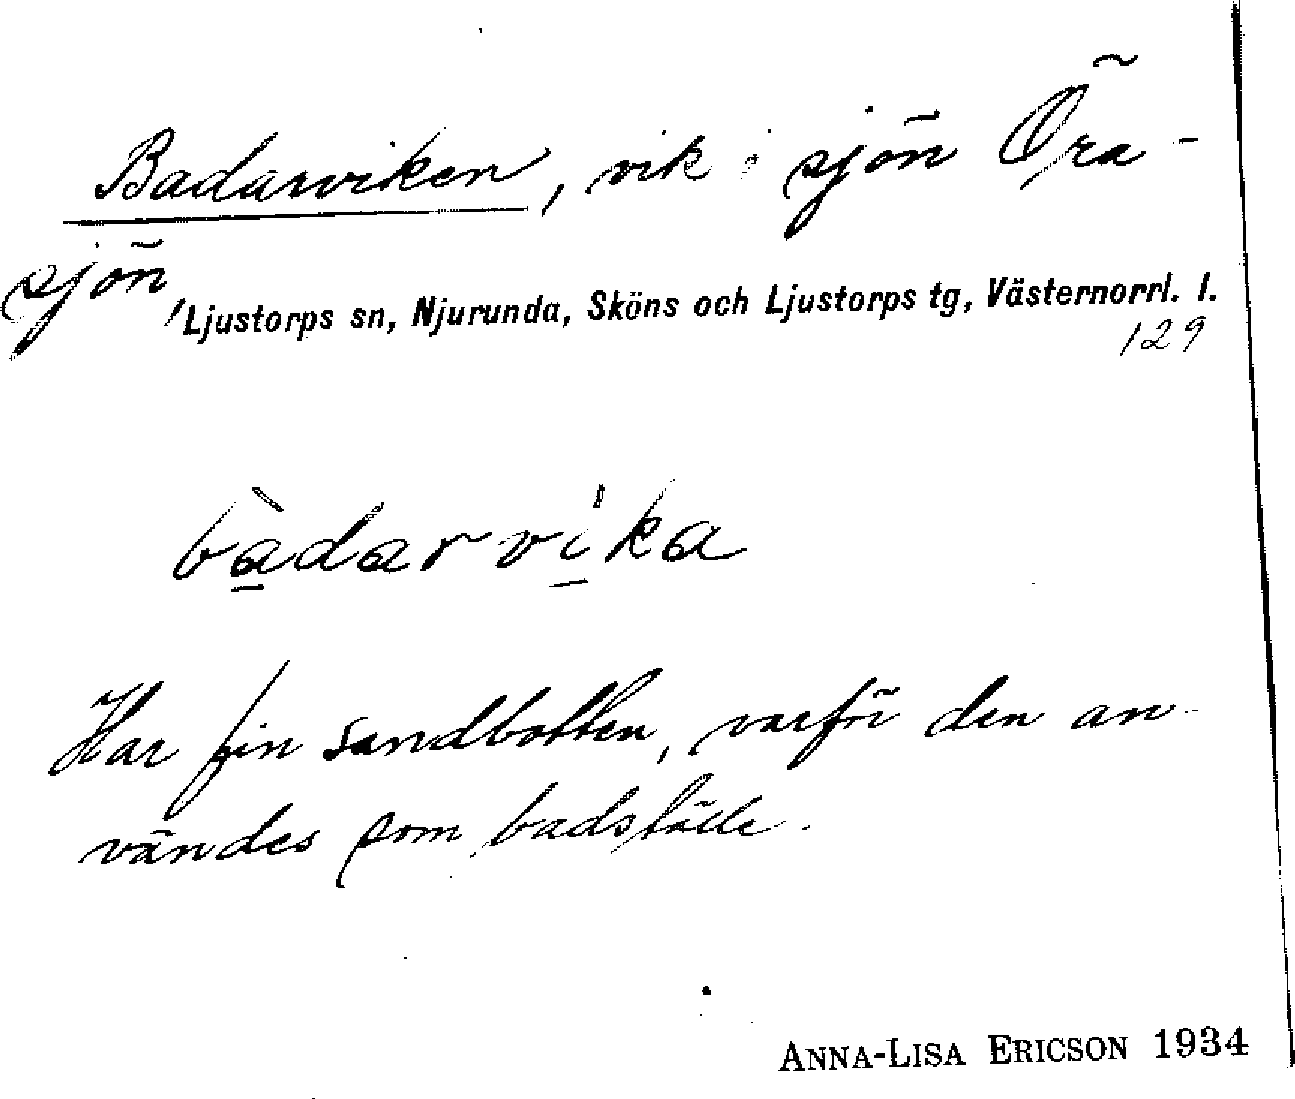 Badarviken, vik i sjön Öra-
sjön,
Ljustorps sn, Njurunda, Sköns och Ljustorps tg, Västernorrl. l.
129
bàdarvika
Har fin sandbotten, varför den an-
vändes som badställe.
ANNA-LISA ERICSON 1934